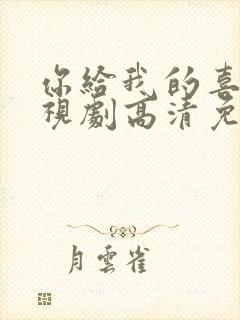 你給我的喜
視劇高清免
月雲雀